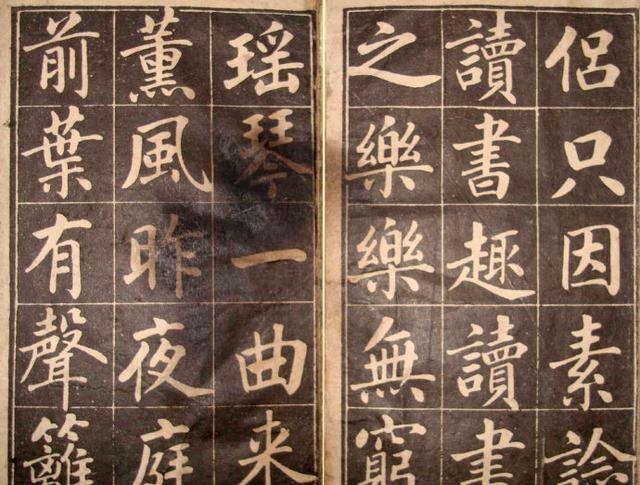 侣只因素諗
讀書趣讀書
之樂樂無窮
瑶琴一曲来
薰風昨夜庭
前葉有聲籬